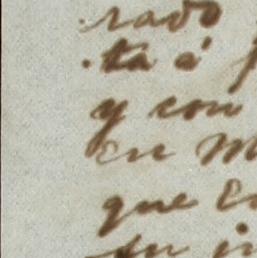 rado
ta á
y con
en M
que en
su